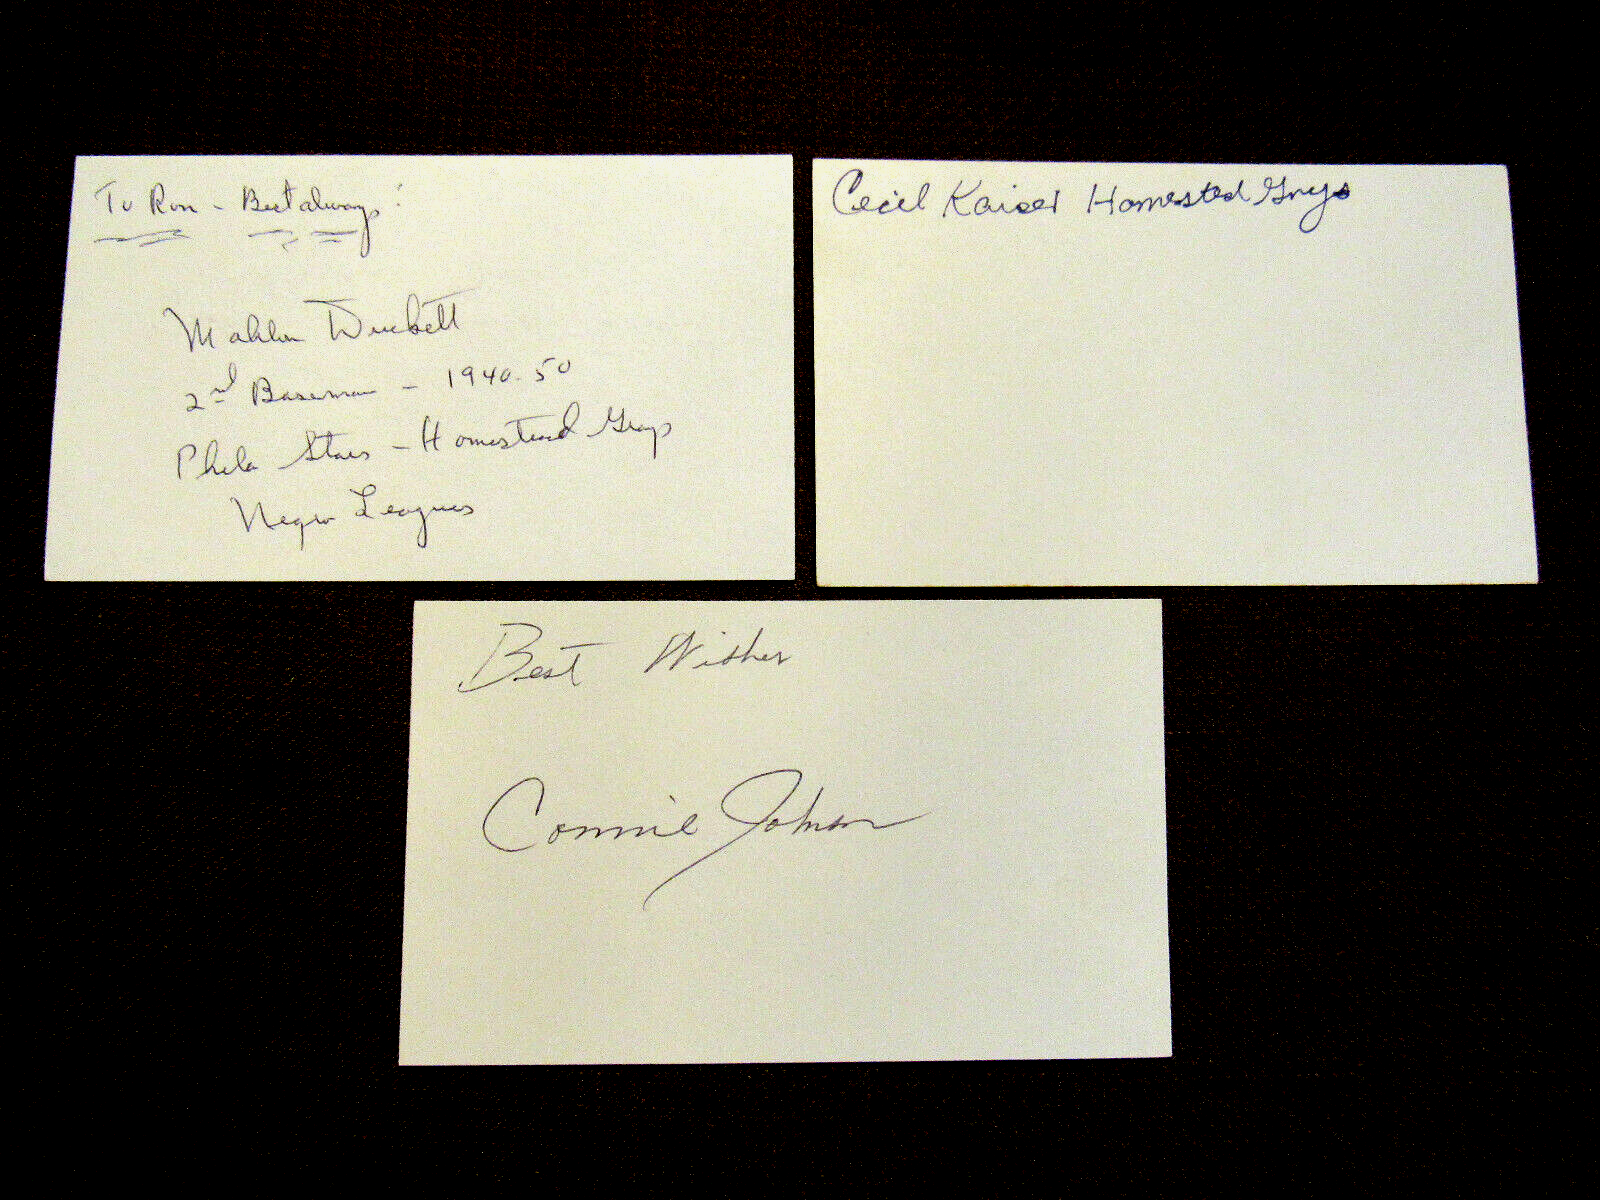 To Ron - Best always!
Mahlon Duckett
2nd Baseman - 1940-50
Phila Stars - Homestead Grays
Negro Leagues
Cecil Kaiser Homested Grays
Best Wishes
Connie Johnson